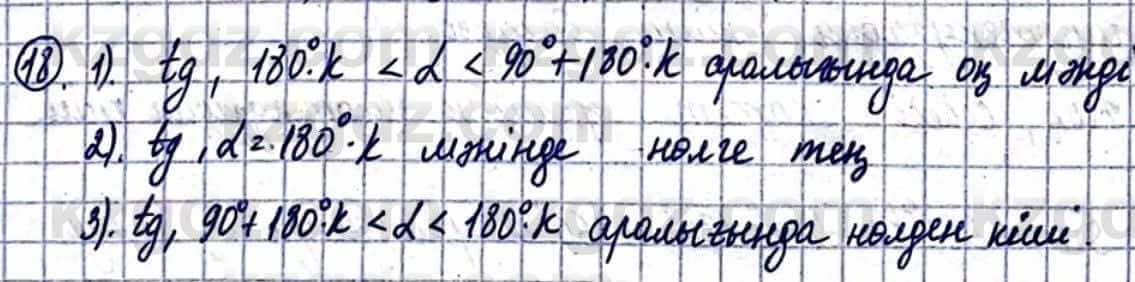 18. 1). tg, 180°·k < α < 90°+180°·k аралығында оң мәнді
2). tg, α = 180°·k мәнінде нөлге тең
3). tg, 90°+180°·k < α < 180°·k аралығында нөлден кіші.